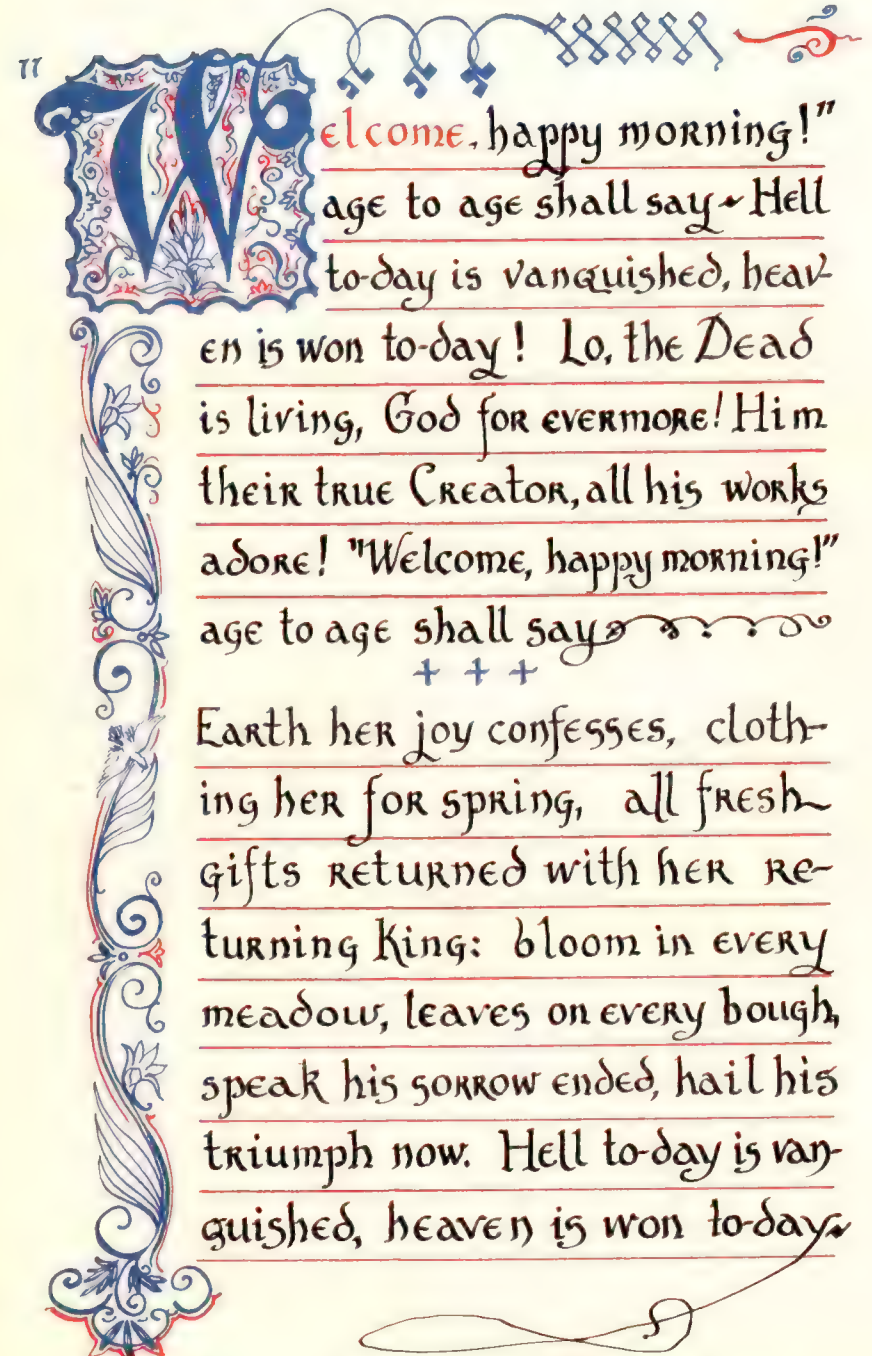 "Welcome, happy morning!"
age to age shall say ~ Hell
to-day is vanquished, heav-
en is won to-day! Lo, the Dead
is living, God for evermore! Him
their true Creator, all his works
adore! "Welcome, happy morning!"
age to age shall say
+ + +
Earth her joy confesses, cloth-
ing her for spring, all fresh
gifts returned with her re-
turning King: bloom in every
meadow, leaves on every bough,
speak his sorrow ended, hail his
triumph now. Hell to-day is van-
guished, heaven is won to-day